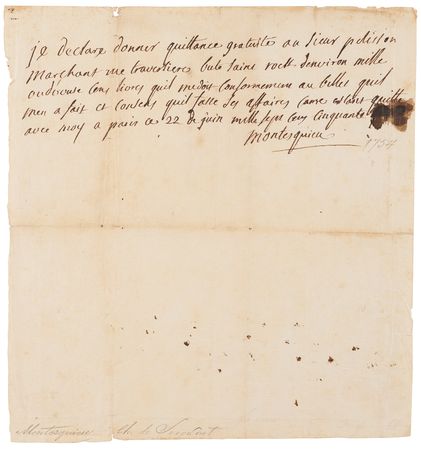 je declare donner quittance gratuites au sieur pelisson
marchant rue traversiere bute saint roch denviron mille
ou douse cens livres quil me doit conformement au billes quil
men a fait et consens quil fasse ses affaires comme estant quitte
avec moy a paris ce 22 de juin mille sept cens cinquante
Montesquieu
1754
Montesquieu Ch. de Secondat